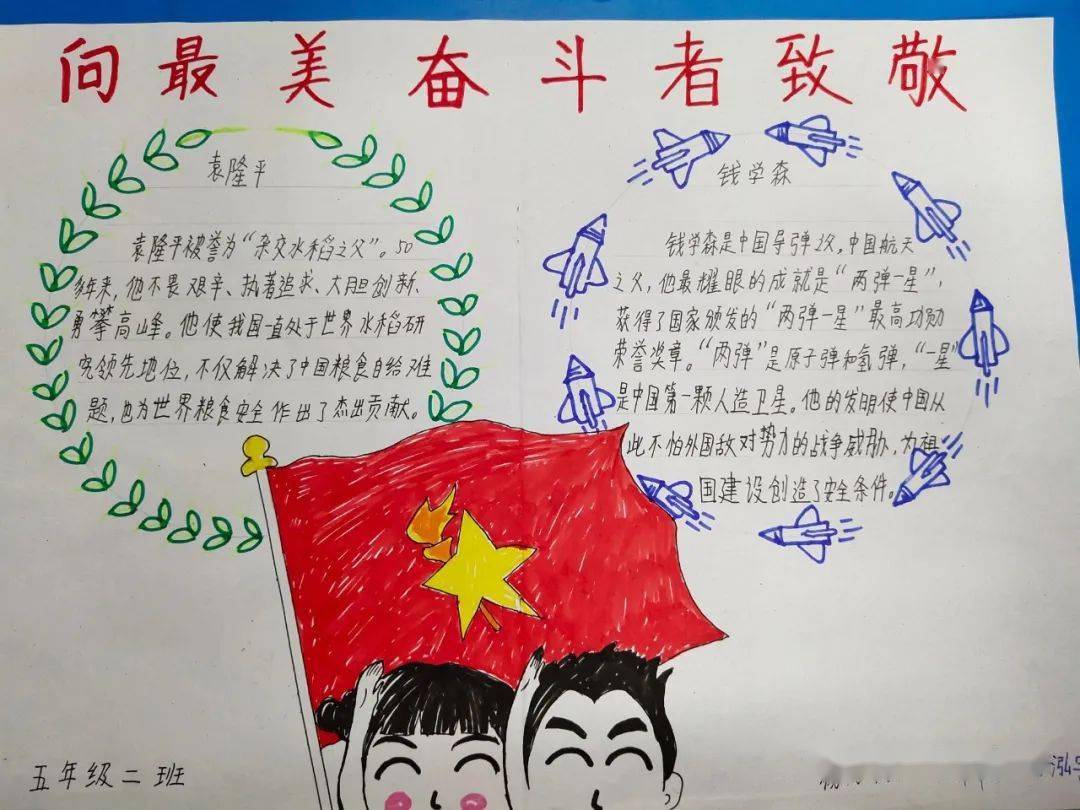 向最美奋斗者致敬
袁隆平
袁隆平被誉为“杂交水稻之父”。50
多年来,他不畏艰辛、执著追求、大胆创新、
勇攀高峰。他使我国一直处于世界水稻研
究领先地位,不仅解决了中国粮食自给难
题,也为世界粮食安全作出了杰出贡献。
钱学森
钱学森是中国导弹之父,中国航天
之父,他最耀眼的成就是“两弹一星”,
获得了国家颁发的“两弹一星”最高功勋
荣誉奖章。“两弹”是原子弹和氢弹,“一星”
是中国第一颗人造卫星。他的发明使中国从
此不怕外国敌对势力的战争威胁,为祖
国建设创造了安全条件。
五年级二班